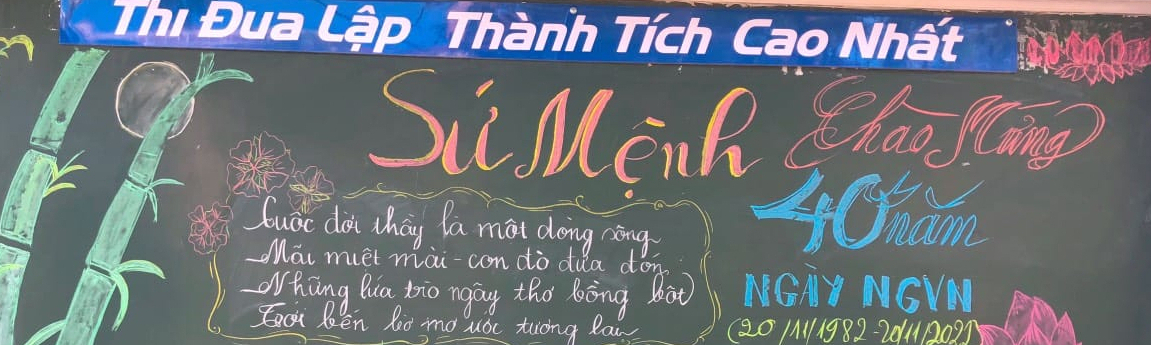 Thi Đua Lập Thành Tích Cao Nhất
Sứ Mệnh
Cuộc đời thầy là một dòng sông
Mãi miệt mài - con đò đưa đón
Những lứa trò ngây thơ bồng bột
Tới bến bờ mơ ước tương lai
Chào Mừng
40 năm
NGÀY NGVN
(20/11/1982-20/11/202